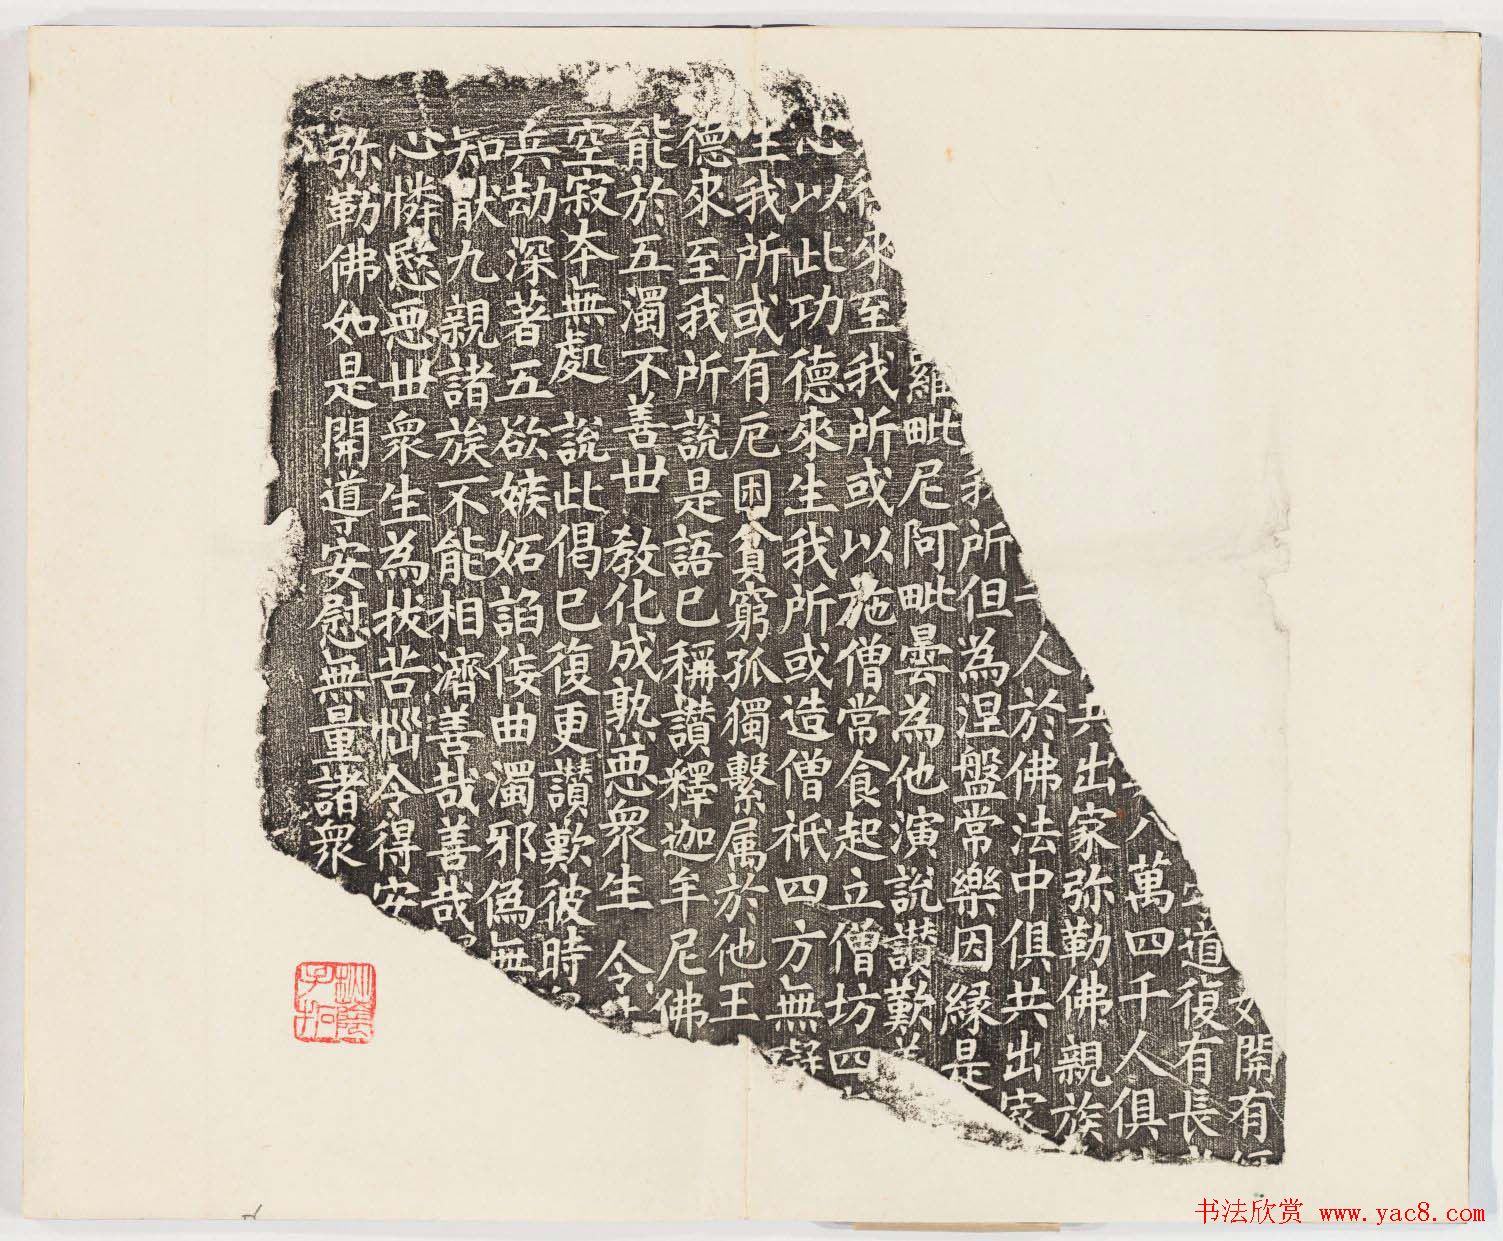 如開有
道復有長
八萬四千人俱
兵出家弥勒佛親族
人於佛法中俱共出家
我所但為涅盤常樂因緣是
羅毗尼阿毗曇為他演說讃歎
來至我所或以施僧常食起立僧坊四
心以此功德來生我所或造僧祇四方無礙
生我所或有厄困貧窮孤獨繫属於他王
德來至我所說是語已稱讃釋迦牟尼佛
能於五濁不善世 教化成熟惡衆生 令
空寂本無處 說此偈已復更讃歎彼時
兵劫深著五欲嫉妬諂佞曲濁邪偽無
知猒九親諸族不能相濟善哉善哉
心憐愍惡世衆生為扷苦惱令得安
弥勒佛如是開導安慰無量諸衆
书法欣赏 www.yac8.com